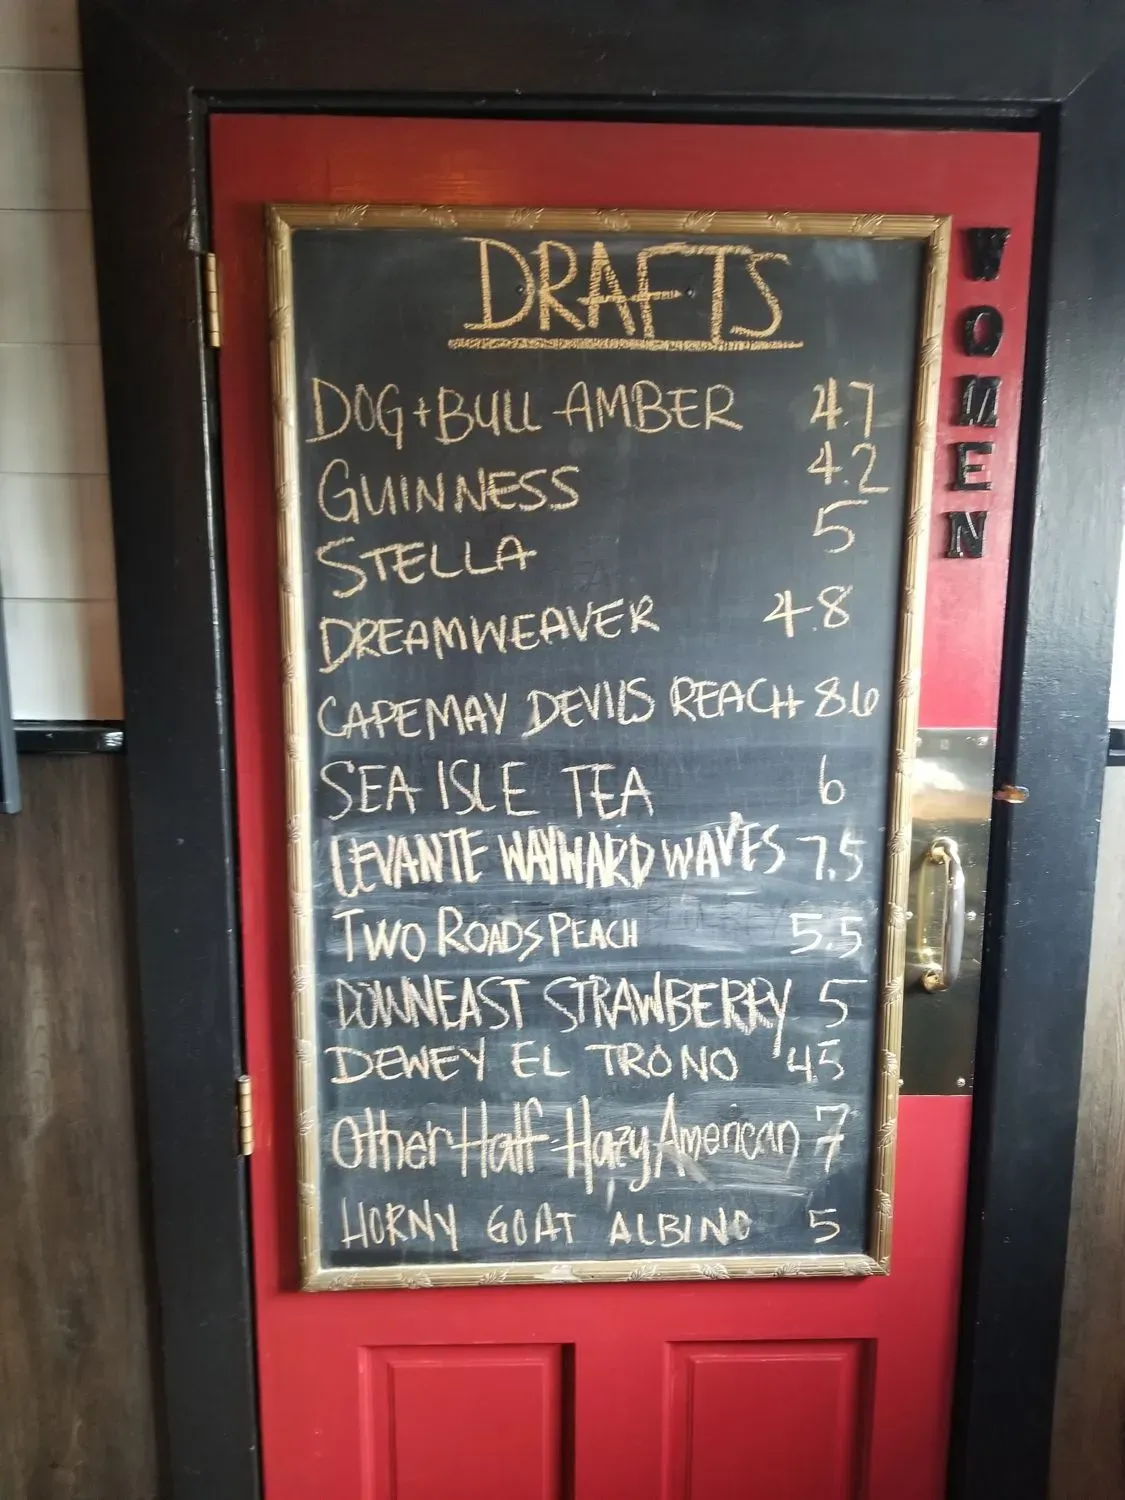 DRAFTS
DOG+BULL AMBER 4.7
GUINNESS 4.2
STELLA 5
DREAMWEAVER 4.8
CAPEMAY DEVILS REACH 8.6
SEA ISLE TEA 6
LEVANTE WAYWARD WAVES 7.5
TWO ROADS PEACH 5.5
DOWNEAST STRAWBERRY 5
DEWEY EL TRONO 45
Other Half Hazy American 7
HORNY GOAT ALBINO 5
WOMEN